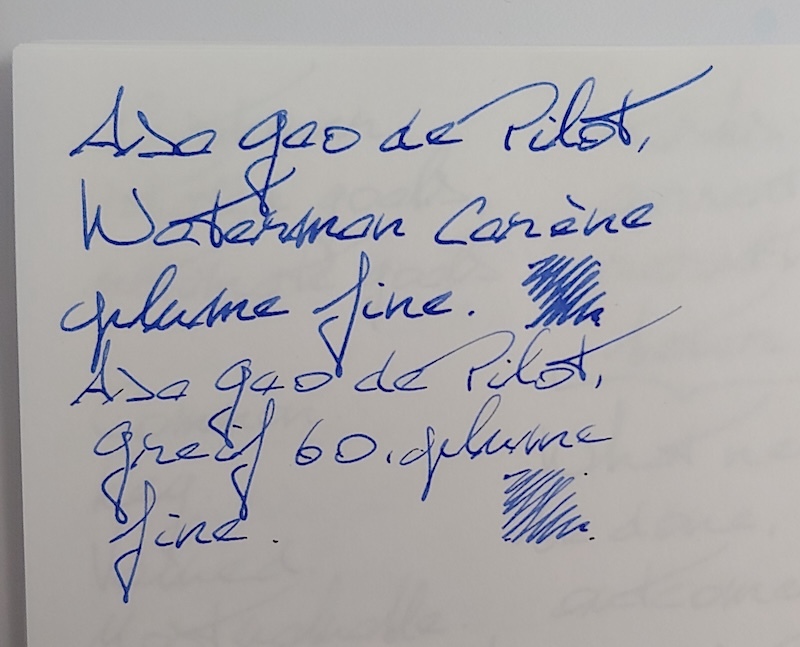 Asa gao de Pilot,
Waterman Carène
plume fine.
Asa gao de Pilot,
Greif 60. plume
fine.